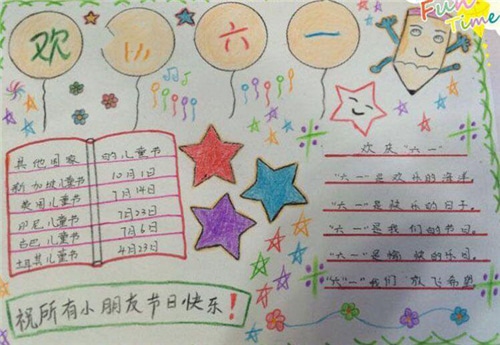 Fun
Time
欢 乐 六 一
其他国家 的儿童节
新加坡儿童节 10月1日
美国儿童节 7月14日
印尼儿童节 7月23日
古巴儿童节 7月6日
土耳其儿童节 4月23日
祝所有小朋友节日快乐!
欢庆"六一"
"六一"是欢乐的海洋
"六一"是欢乐的日子.
"六一"是我们的节日.
"六一"是愉快的乐园.
"六一"我们放飞希望